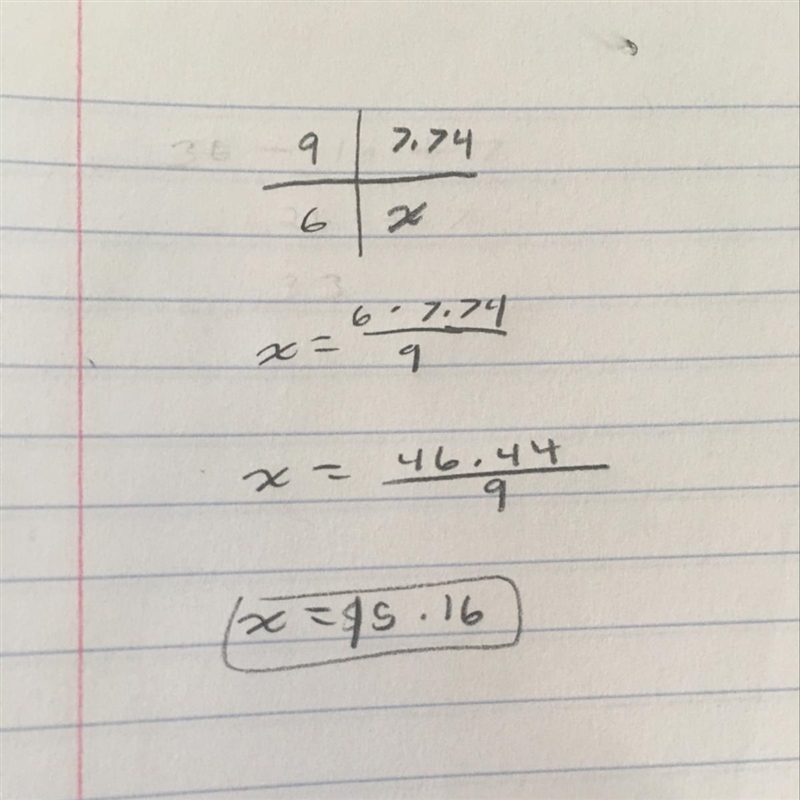 9 | 7.74
6 | x
x = 6 · 7.74 / 9
x = 46.44 / 9
x = $5.16